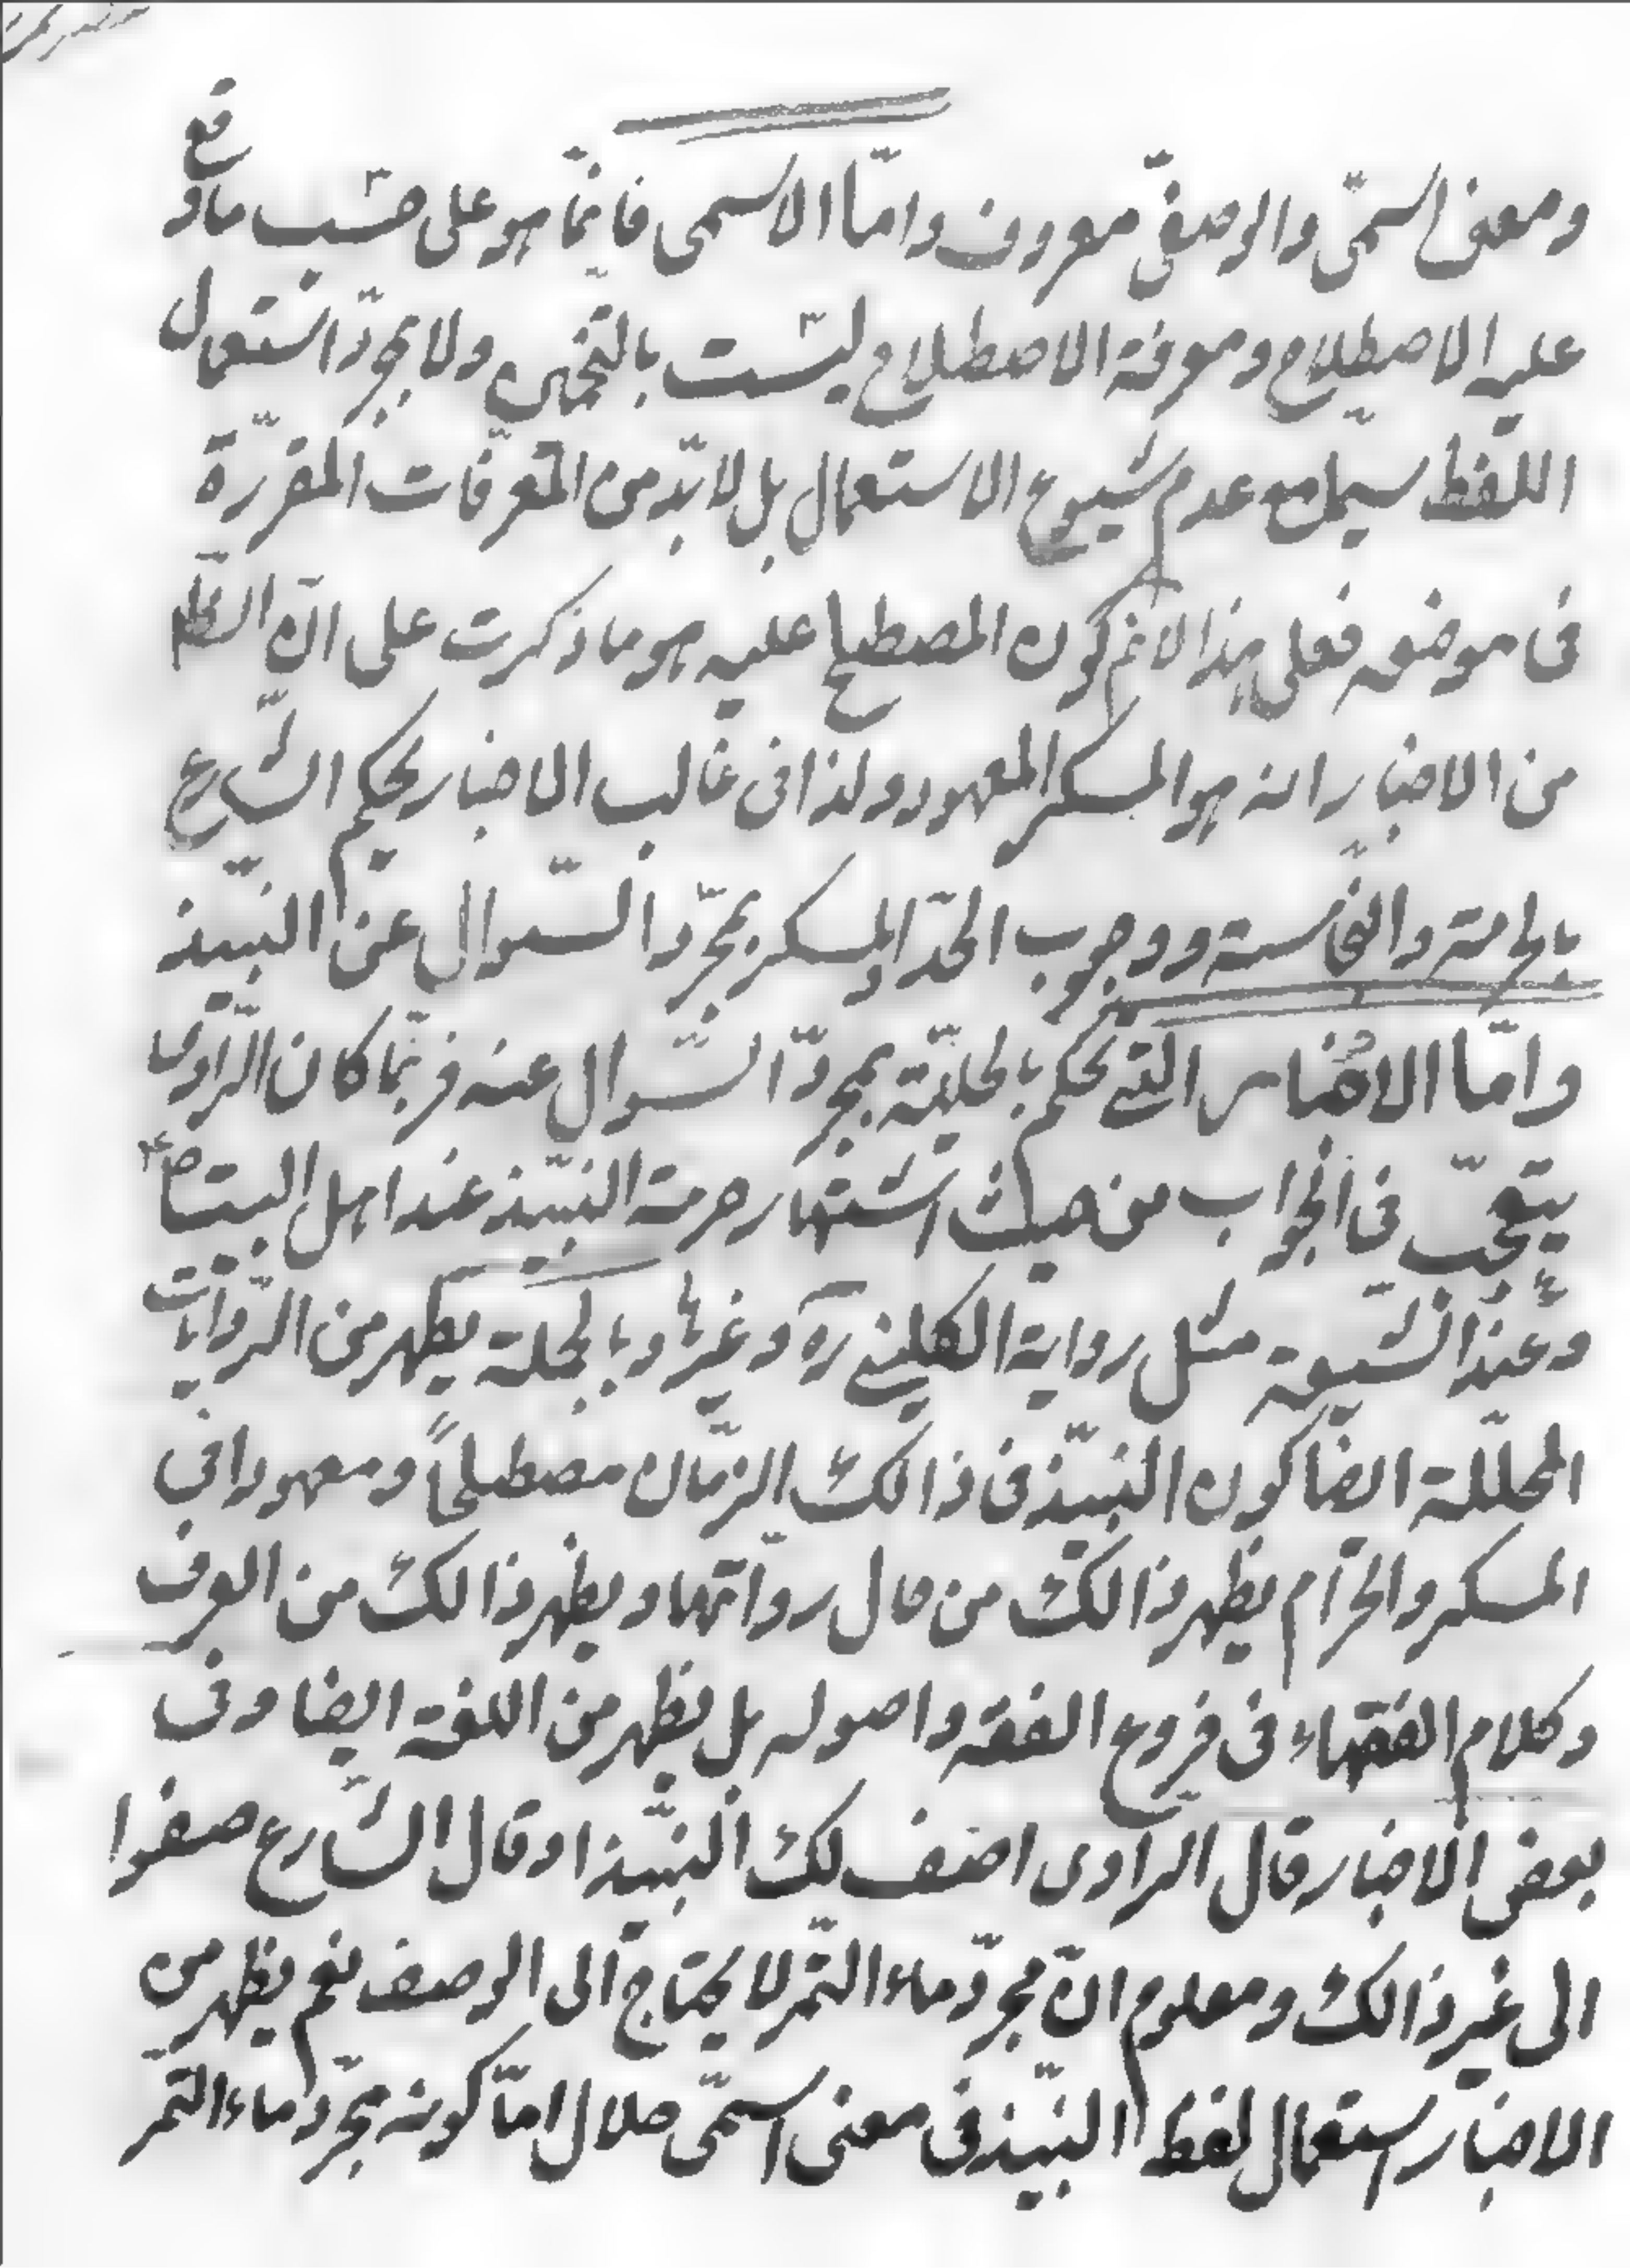 ومعنى اسمىّ والوصفىّ معروف وامّا الاسمى فانّما هو على حسب ما وقع
عليه الاصطلاح ومعرفة الاصطلاح ليست بالتخمين ولا بمجرّد استعمال
اللّفظ سيما مع عدم شيوع الاستعمال بل لا بدّ من المعرّفات المقرّرة
فى موضعه فعلى هذا لا نم كون المصطلح عليه هو ما ذكرت على انّ الظّ
من الاخبار انه هو المسكر المعهود ولذا فى غالب الاخبار يحكم الشّارع
بالحرمة والنّجاسة ووجوب الحدّ او المسكر بمجرّد السّوال عن النبّيذ
وامّا الاخبار الّتى تحكم بالحليّة بمجرّد السّوال عنه فربّما كان الرّاوى
يتعجّب فى الجواب من حيث اشتهار حرمة النبّيذ عند اهل البيت ص ع
وعند الشّيعة مثل رواية الكلينى ره وغيرها وبالجملة يظهر من الرّوايات
المحلّلة ايضا كون النبّيذ فى ذالك الزّمان مصطلحاً ومعهودا فى
المسكر والحرام يظهر ذالك من حال رواتها ويظهر ذالك من العرف
وكلام الفقهاء فى فروع الفقه واصوله بل يظهر من اللغة ايضا وفى
بعض الاخبار قال الراوى اصف لك النبّيذ او قال الشّارع صفوا
الى غير ذالك ومعلوم انّ مجرّد ماء التّمر لا يحتاج الى الوصف نعم يظهر من
الاخبار استعمال لفظ النبّيذ فى معنى اسمىّ حلال امّا كونه مجرّد ماء التمر